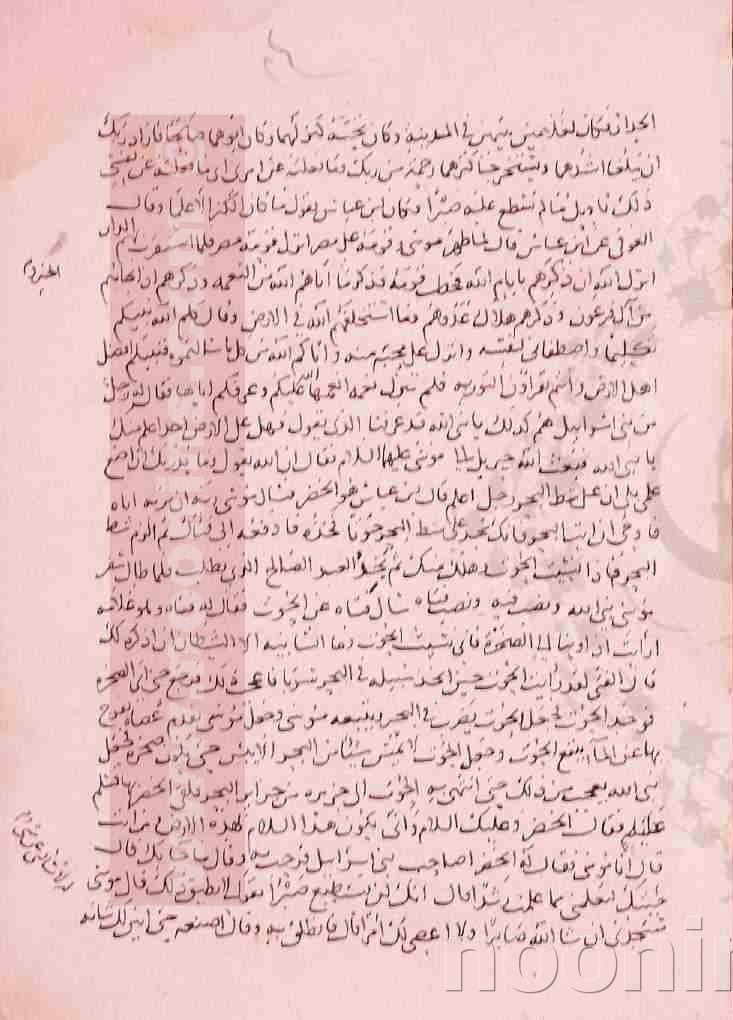 الجدار فكان لغلامين يتيمين في المدينة وكان تحته كنز لهما وكان ابوهما صالحا فاراد ربك
ان يبلغا اشدهما ويستخرجا كنزهما رحمة من ربك وما فعلته عن امري اي ما فعلته عن نفسي
ذلك تاويل ما لم تسطع عليه صبرا وكان ابن عباس يقول ما كان الكنز الا علما وقال
العوفي عن ابن عباس قال لما ظهر موسى وقومه على مصر انزل قومه مصر فلما استقرت بهم الدار
انزل الله ان ذكرهم بايام الله فخطب قومه فذكر ما اتاهم الله من النعمة وذكرهم اذ انجاهم
من آل فرعون وذكرهم هلاك عدوهم وما استخلفهم الله في الارض وقال كلم الله نبيكم
تكليما واصطفاني لنفسه وانزل علي محبة منه واتاكم الله من كل ما سالتموه فنبيكم افضل
اهل الارض وانتم تقراون التورية فلم يترك نعمة انعمها الله عليكم وعرفكم اياها فقال له رجل
من بني اسرائيل هم كذلك يا نبي الله قد عرفنا الذي تقول فهل على الارض احد اعلم منك
يا نبي الله فبعث الله جبريل الى موسى عليهما السلام فقال ان الله يقول وما يدريك اين اضع
علمي بلى ان على شط البحر رجل اعلم قال ابن عباس هو الخضر فسال موسى ربه ان يريه اياه
فاوحى ان ايت البحر فانك تجد على شط البحر حوتا فخذه فادفعه الى فتاك ثم الزم شط
البحر فاذا نسيت الحوت وهلك منك ثم تجد العبد الصالح الذي تطلب فلما طال سفر
موسى نبي الله ونصب فيه ونصب فتاه سال فتاه عن الحوت فقال له فتاه وهو غلامه
ارايت اذ اوينا الى الصخرة فاني نسيت الحوت وما انسانيه الا الشيطان ان اذكره لك
قال الفتى لقد رايت الحوت حين اتخذ سبيله في البحر سربا فاعجب ذلك فرجع حتى اتى الصخرة
فوجد الحوت فجعل الحوت يضرب في البحر ويتبعه موسى وجعل موسى يقدم عصاه يفرج
بها عن الماء يتبع الحوت وجعل الحوت لا يمس شيئا من البحر الا يبس حتى يكون صخرة فجعل
نبي الله يعجب من ذلك حتى انتهى به الحوت الى جزيرة من جزاير البحر فلقي الخضر بها فسلم
عليه فقال الخضر وعليك السلام وانى يكون هذا السلام بهذه الارض ومن انت
قال انا موسى فقال له الخضر اصاحب بني اسرائيل فرحب به وقال ما جا بك قال
جئتك تعلمني مما علمت رشدا قال انك لن تستطيع صبرا يقول لا تطيق ذلك قال موسى
ستجدني ان شا الله صابرا ولا اعصي لك امرا قال فانطلق به وقال اصنعه حتى ابين لك شانه
noonin